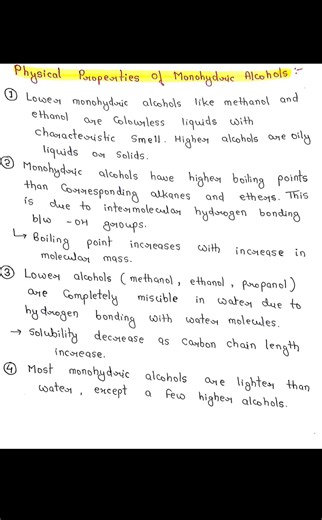 Physical Properties of Monohydric Alcohols :-
① Lower monohydric alcohols like methanol and
ethanol are Colourless liquids with
characteristic smell. Higher alcohols are oily
liquids or Solids.
② Monohydric alcohols have higher boiling points
than Corresponding alkanes and ethers. This
is due to intermolecular hydrogen bonding
b/w -OH groups.
↳ Boiling point increases with increase in
molecular mass.
③ Lower alcohols (methanol, ethanol, propanol)
are Completely miscible in water due to
hydrogen bonding with water molecules.
→ Solubility decrease as Carbon chain length
increase.
④ Most monohydric alcohols are lighter than
water, except a few higher alcohols.